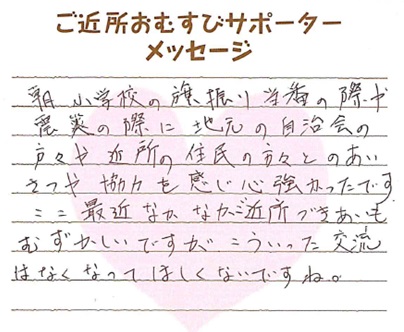 ご近所おむすびサポーター
メッセージ
朝 小学校の旗振り当番の際や
震災の際に地元の自治会の
方々や近所の住民の方々とのあい
さつや協力を感じ心強かったです
ここ最近なかなかご近所づきあいも
むずかしいですが こういった交流
はなくなってほしくないですね。